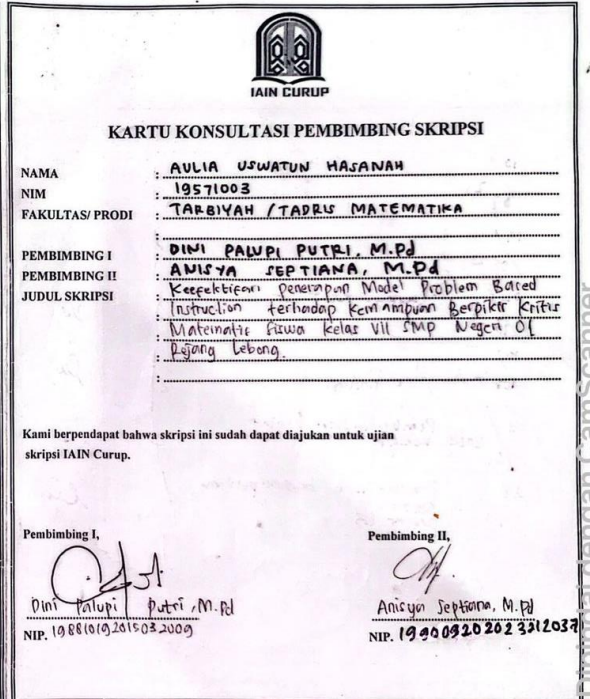 IAIN CURUP
KARTU KONSULTASI PEMBIMBING SKRIPSI
NAMA : AULIA USWATUN HASANAH
NIM : 19571003
FAKULTAS/ PRODI : TARBIYAH / TADRIS MATEMATIKA
:
PEMBIMBING I : DINI PALUPI PUTRI, M.Pd
PEMBIMBING II : ANISYA SEPTIANA, M.Pd
JUDUL SKRIPSI : Keefektifan Penerapan Model Problem Based
: Instruction terhadap Kemampuan Berpikir Kritis
: Matematis Siswa Kelas VII SMP Negeri 01
: Rejang Lebong.
:
Kami berpendapat bahwa skripsi ini sudah dapat diajukan untuk ujian
skripsi IAIN Curup.
Pembimbing I, Pembimbing II,
Dini Palupi Putri, M.Pd Anisya Septiana, M.Pd
NIP. 198810192015032009 NIP. 199009202023212037
Digindai dengan CamScanner